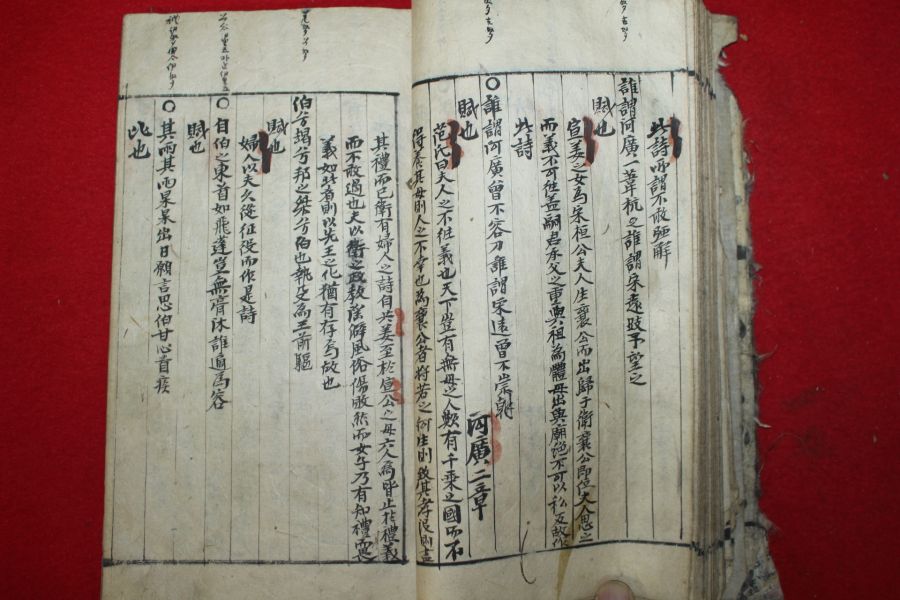 此詩所謂不敢
誰謂河廣一葦杭之誰謂宋遠跂予望之
賦也
宣姜之女為宋桓公夫人生襄公而出歸于衛襄公即位夫人思之
而義不可往盖嗣君承父之重與祖為體母出與廟絶不可以私反故作
此詩
○誰謂河廣曾不容刀誰謂宋遠曾不崇朝
賦也
河廣二章
范氏曰夫人之不徃義也天下豈有無母之人歟有千乘之國而不
得養其母則人之不幸也為襄公者將若之何生則致其孝沒則盡
其禮而已衛有婦人之詩自共姜至於宣公之母六人焉皆止於禮義
而不敢過也夫以衛之政教淫僻風俗傷敗然而女子乃有知禮而畏
義如此者則以先王之化猶有存焉故也
伯兮朅兮邦之桀兮伯也執殳為王前驅
賦也
婦人以夫久從征役而作是詩
○自伯之東首如飛蓬豈無膏沐誰適為容
賦也
○其雨其雨杲杲出日願言思伯甘心首疾
比也